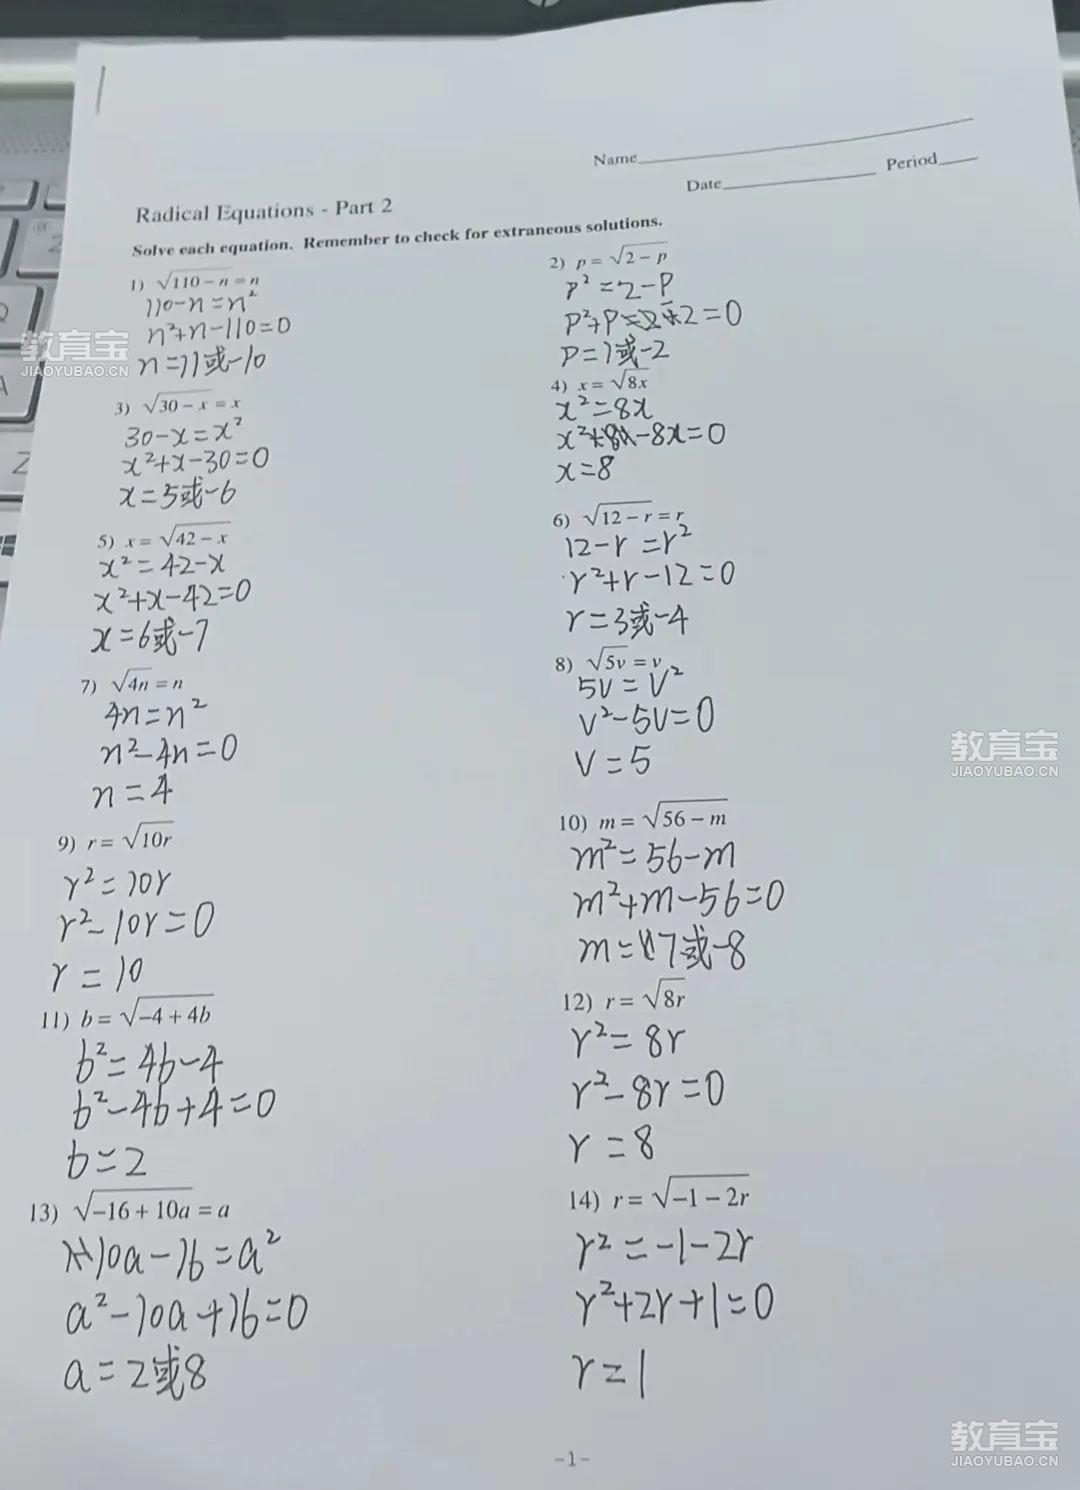 Name
Date
Period
Radical Equations - Part 2
Solve each equation. Remember to check for extraneous solutions.
1) √(110 − n) = n
110-n=n²
n²+n-110=0
n=11或-10
2) p = √(2 − p)
p²=2-p
p²+p-2=0
p=1或-2
3) √(30 − x) = x
30-x=x²
x²+x-30=0
x=5或-6
4) x = √(8x)
x²=8x
x²-8x=0
x=8
5) x = √(42 − x)
x²=42-x
x²+x-42=0
x=6或-7
6) √(12 − r) = r
12-r=r²
r²+r-12=0
r=3或-4
7) √(4n) = n
4n=n²
n²-4n=0
n=4
8) √(5v) = v
5v=v²
v²-5v=0
v=5
9) r = √(10r)
r²=10r
r²-10r=0
r=10
10) m = √(56 − m)
m²=56-m
m²+m-56=0
m=7或-8
11) b = √(−4 + 4b)
b²=4b-4
b²-4b+4=0
b=2
12) r = √(8r)
r²=8r
r²-8r=0
r=8
13) √(−16 + 10a) = a
10a-16=a²
a²-10a+16=0
a=2或8
14) r = √(−1 − 2r)
r²=-1-2r
r²+2r+1=0
r=1
-1-
教育宝
JIAOYUBAO.CN
教育宝
JIAOYUBAO.CN
教育宝
JIAOYUBAO.CN